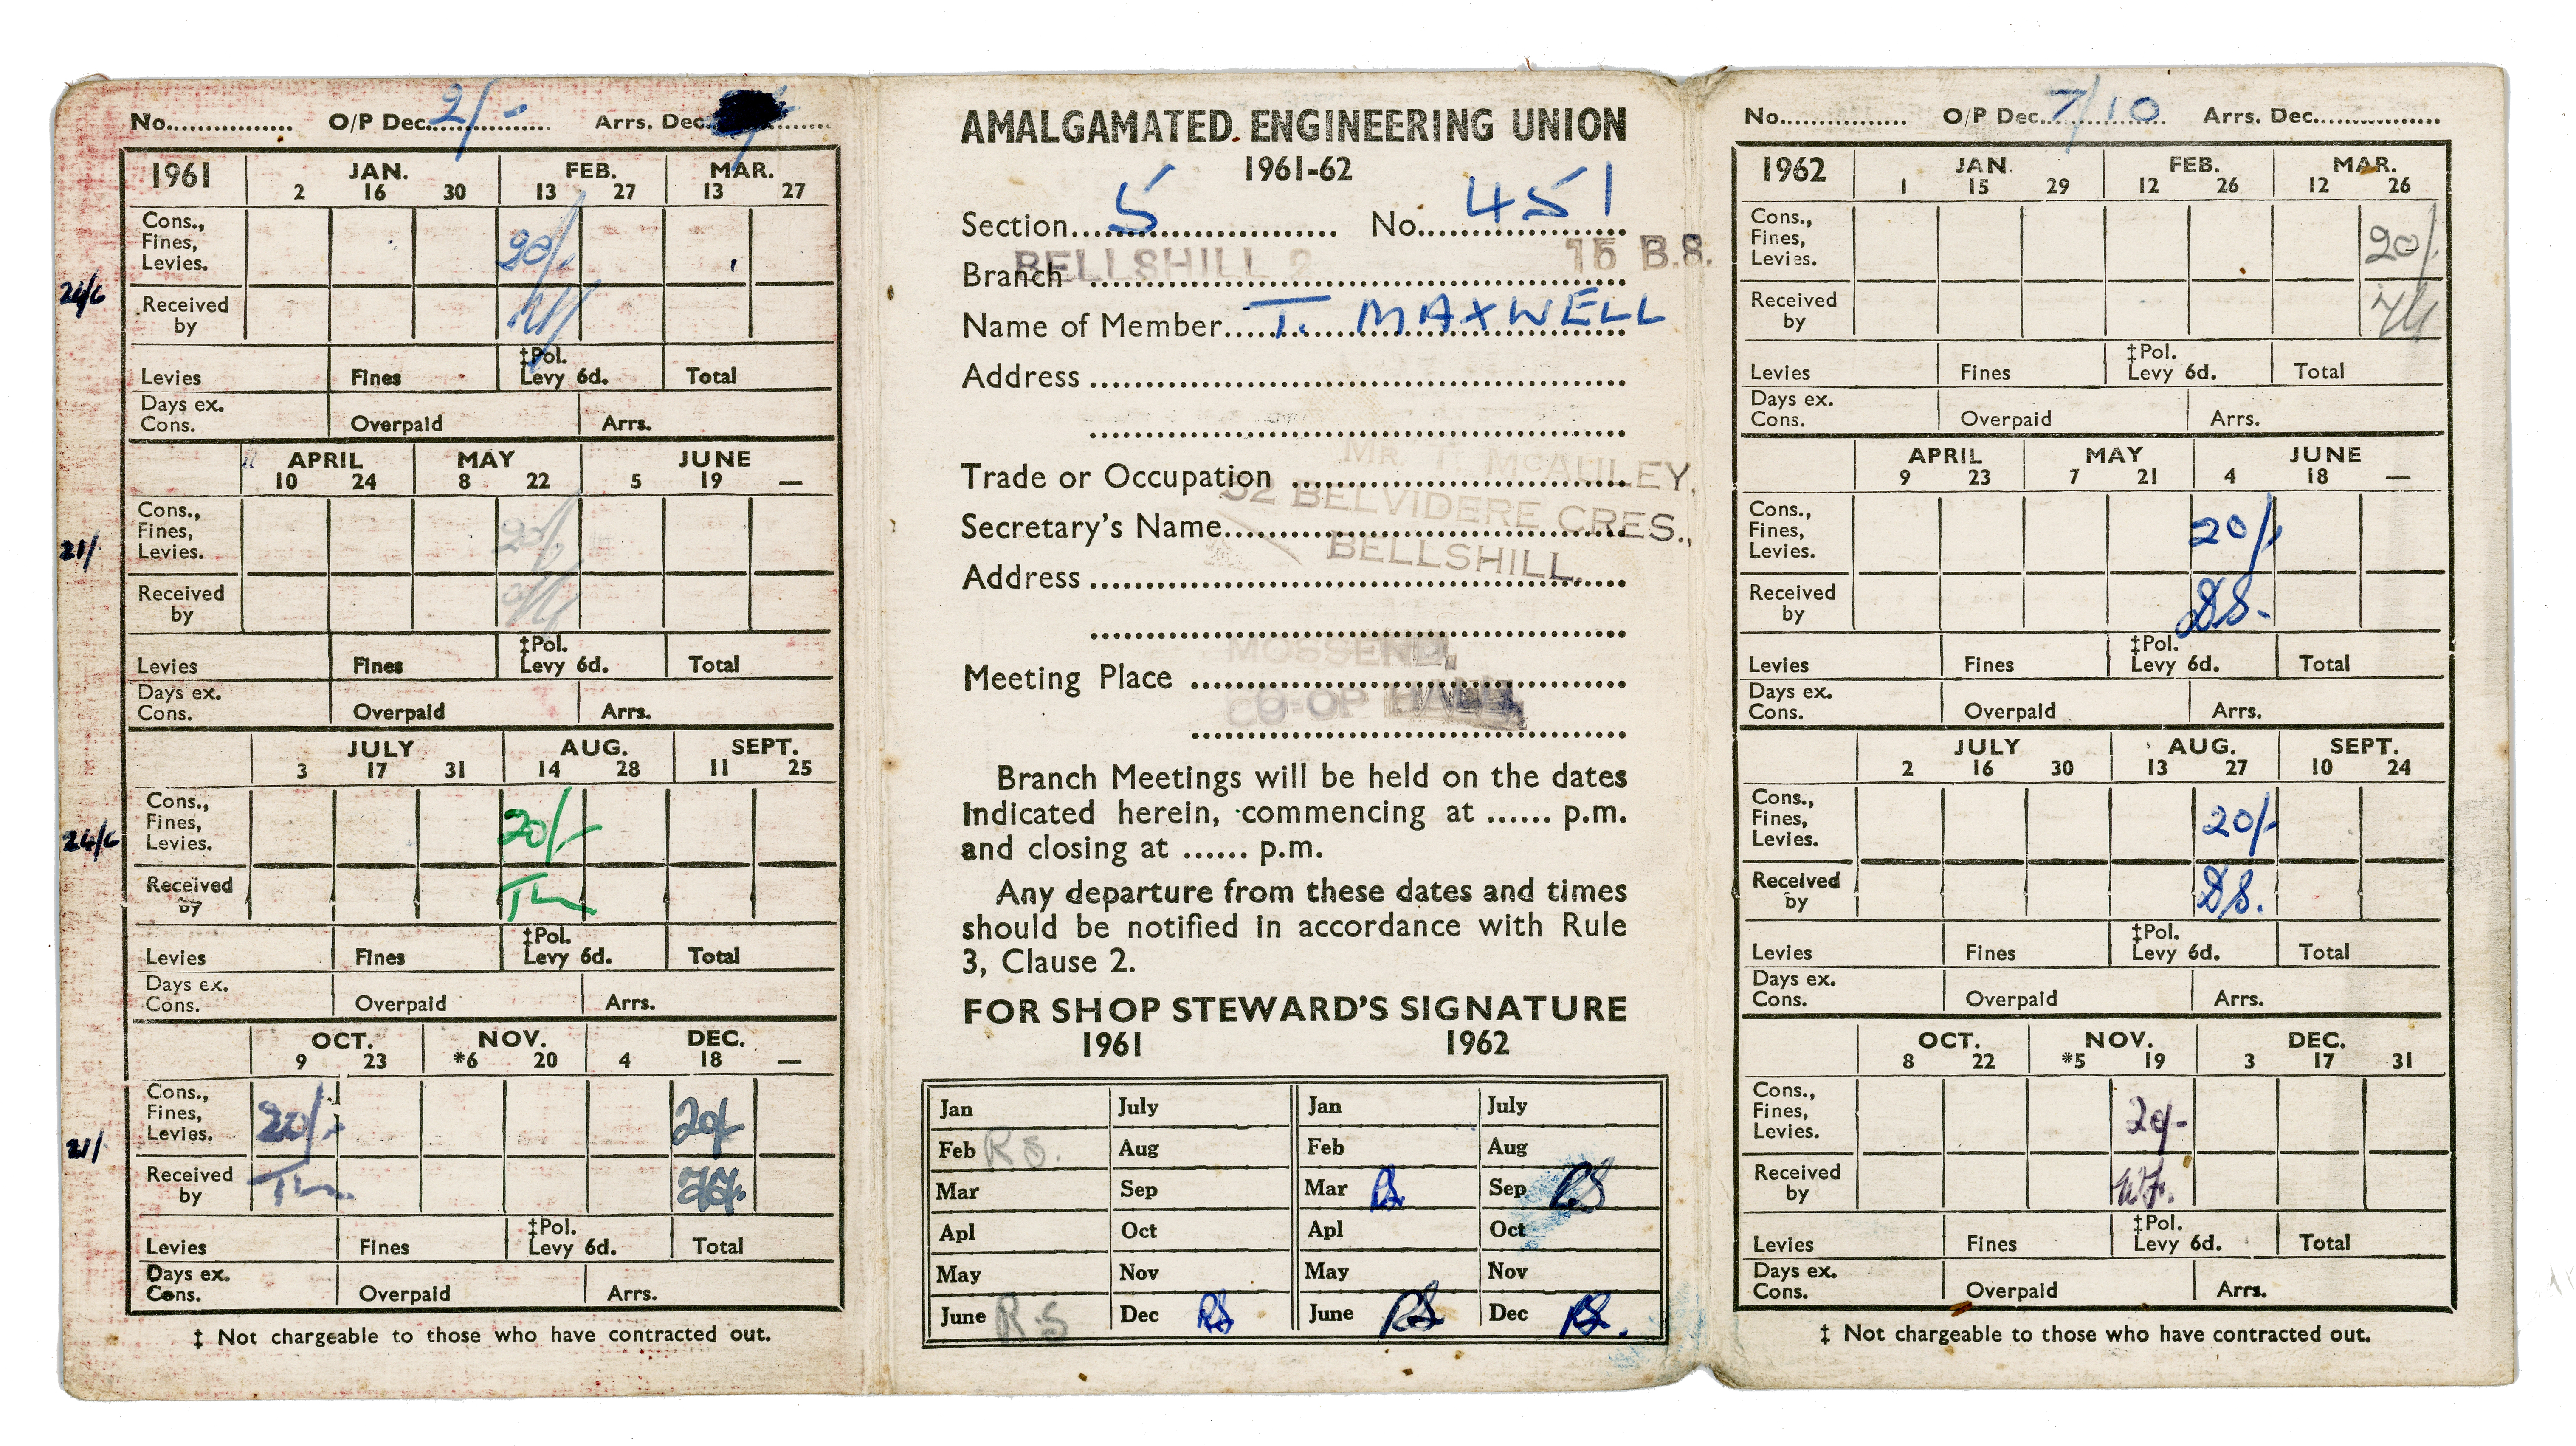 No................ O/P Dec. 2/- Arrs. Dec.
1961 JAN. FEB. MAR.
2 16 30 13 27 13 27
Cons., Fines, Levies. 20/-
24/6
Received by
Levies Fines ‡Pol. Levy 6d. Total
Days ex. Cons. Overpaid Arrs.
APRIL MAY JUNE
10 24 8 22 5 19 —
Cons., Fines, Levies. 20/-
21/
Received by
Levies Fines ‡Pol. Levy 6d. Total
Days ex. Cons. Overpaid Arrs.
JULY AUG. SEPT.
3 17 31 14 28 11 25
Cons., Fines, Levies. 20/-
24/6
Received by
Levies Fines ‡Pol. Levy 6d. Total
Days ex. Cons. Overpaid Arrs.
OCT. NOV. DEC.
9 23 *6 20 4 18 —
Cons., Fines, Levies. 20/- 20/-
21/
Received by
Levies Fines ‡Pol. Levy 6d. Total
Days ex. Cons. Overpaid Arrs.
‡ Not chargeable to those who have contracted out.
AMALGAMATED ENGINEERING UNION
1961-62
Section 5 No. 451
Branch BELLSHILL 2 15 B.S.
Name of Member T. MAXWELL
Address
Trade or Occupation
MR. T. McAULEY,
Secretary's Name
52 BELVIDERE CRES.,
Address
BELLSHILL.
Meeting Place
MOSSEND,
CO-OP HALL,
Branch Meetings will be held on the dates
indicated herein, commencing at ...... p.m.
and closing at ...... p.m.
Any departure from these dates and times
should be notified in accordance with Rule
3, Clause 2.
FOR SHOP STEWARD'S SIGNATURE
1961 1962
Jan July Jan July
Feb RS. Aug Feb Aug
Mar Sep Mar RS. Sep RS
Apl Oct Apl Oct
May Nov May Nov
June RS Dec RS June RS Dec RS.
No................ O/P Dec. 7/10 Arrs. Dec................
1962 JAN. FEB. MAR.
1 15 29 12 26 12 26
Cons., Fines, Levies. 20/-
Received by
Levies Fines ‡Pol. Levy 6d. Total
Days ex. Cons. Overpaid Arrs.
APRIL MAY JUNE
9 23 7 21 4 18 —
Cons., Fines, Levies. 20/-
Received by
Levies Fines ‡Pol. Levy 6d. Total
Days ex. Cons. Overpaid Arrs.
JULY AUG. SEPT.
2 16 30 13 27 10 24
Cons., Fines, Levies. 20/-
Received by
Levies Fines ‡Pol. Levy 6d. Total
Days ex. Cons. Overpaid Arrs.
OCT. NOV. DEC.
8 22 *5 19 3 17 31
Cons., Fines, Levies. 20/-
Received by
Levies Fines ‡Pol. Levy 6d. Total
Days ex. Cons. Overpaid Arrs.
‡ Not chargeable to those who have contracted out.